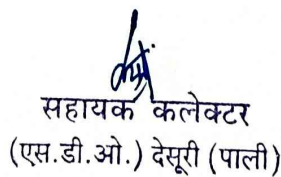 सहायक कलेक्टर
(एस.डी.ओ.) देसूरी (पाली)